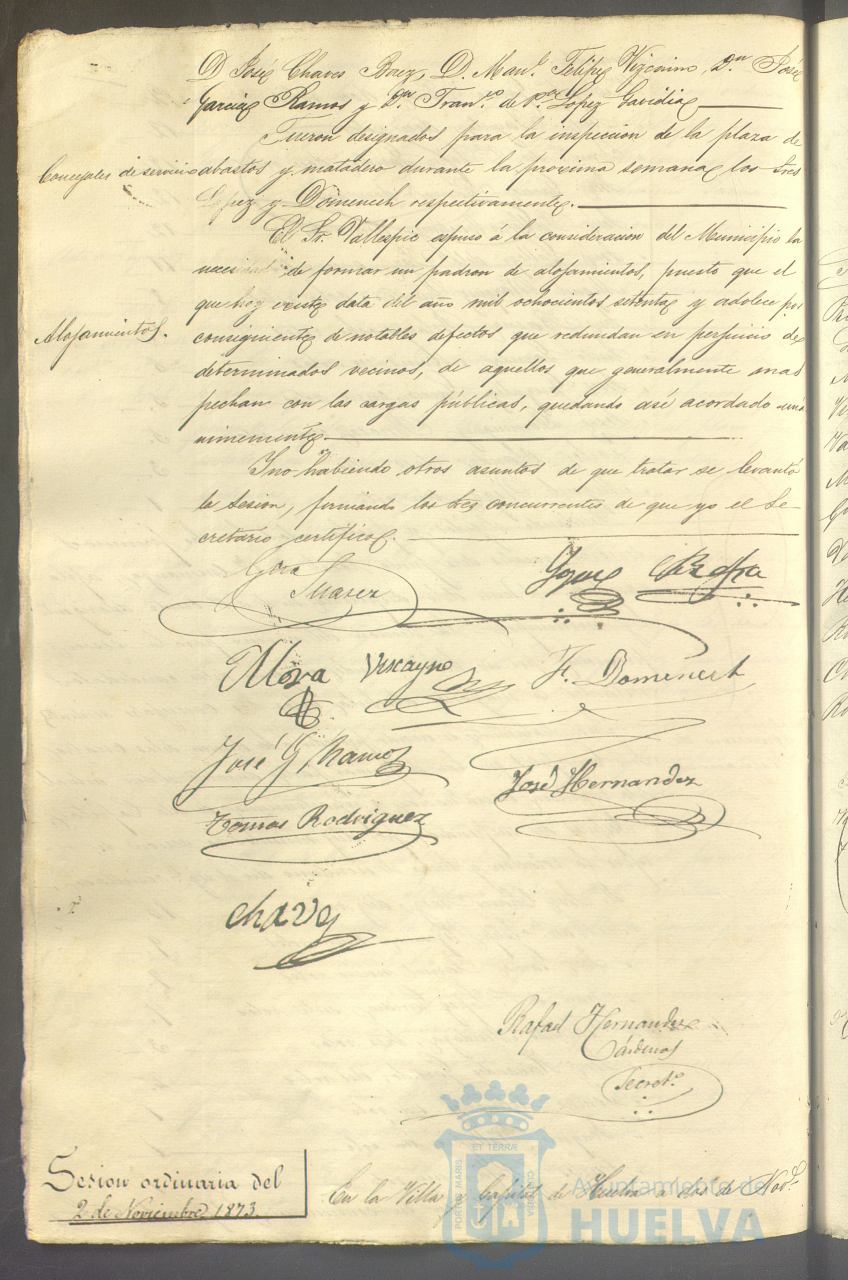 D José Chaves Baez, D. Man.l Felipe Vizcaino, D.n José
Garcia Ramos y D.n Fran.co de P.a Lopez Gavidia
Fueron designados para la inspeccion de la plaza de
Concejales de servicio
abastos y matadero durante la proxima semana los Sres
Lopez y Domenech respectivamente.
El Sr. Vallespic espuso á la consideracion del Municipio la
necesidad de formar un padron de alojamientos, puesto que el
que hoy existe data del año mil ochocientos setenta y adolece por
Alojamientos.
consiguiente de notables defectos que redundan en perjuicio de
determinados vecinos, de aquellos que generalmente mas
pechan con las cargas públicas, quedando asi acordado uná
nimemente.
Y no habiendo otros asuntos de que tratar se levantó
la Sesion, firmando los Sres concurrentes de que yo el Se-
cretario certifico.
Suarez
Mora Viscayno F. Domenech
José G Ramos
José Hernandez
Tomas Rodriguez
Chavez
Rafael Hernandez
Cárdenas
Secret.o
Sesion ordinaria del
2 de Noviembre 1873.
En la Villa y Capital de Huelva a dos de Nov.e
PORTUS MARIS
ET TERRÆ
CUSTODIA
Ayuntamiento de
HUELVA